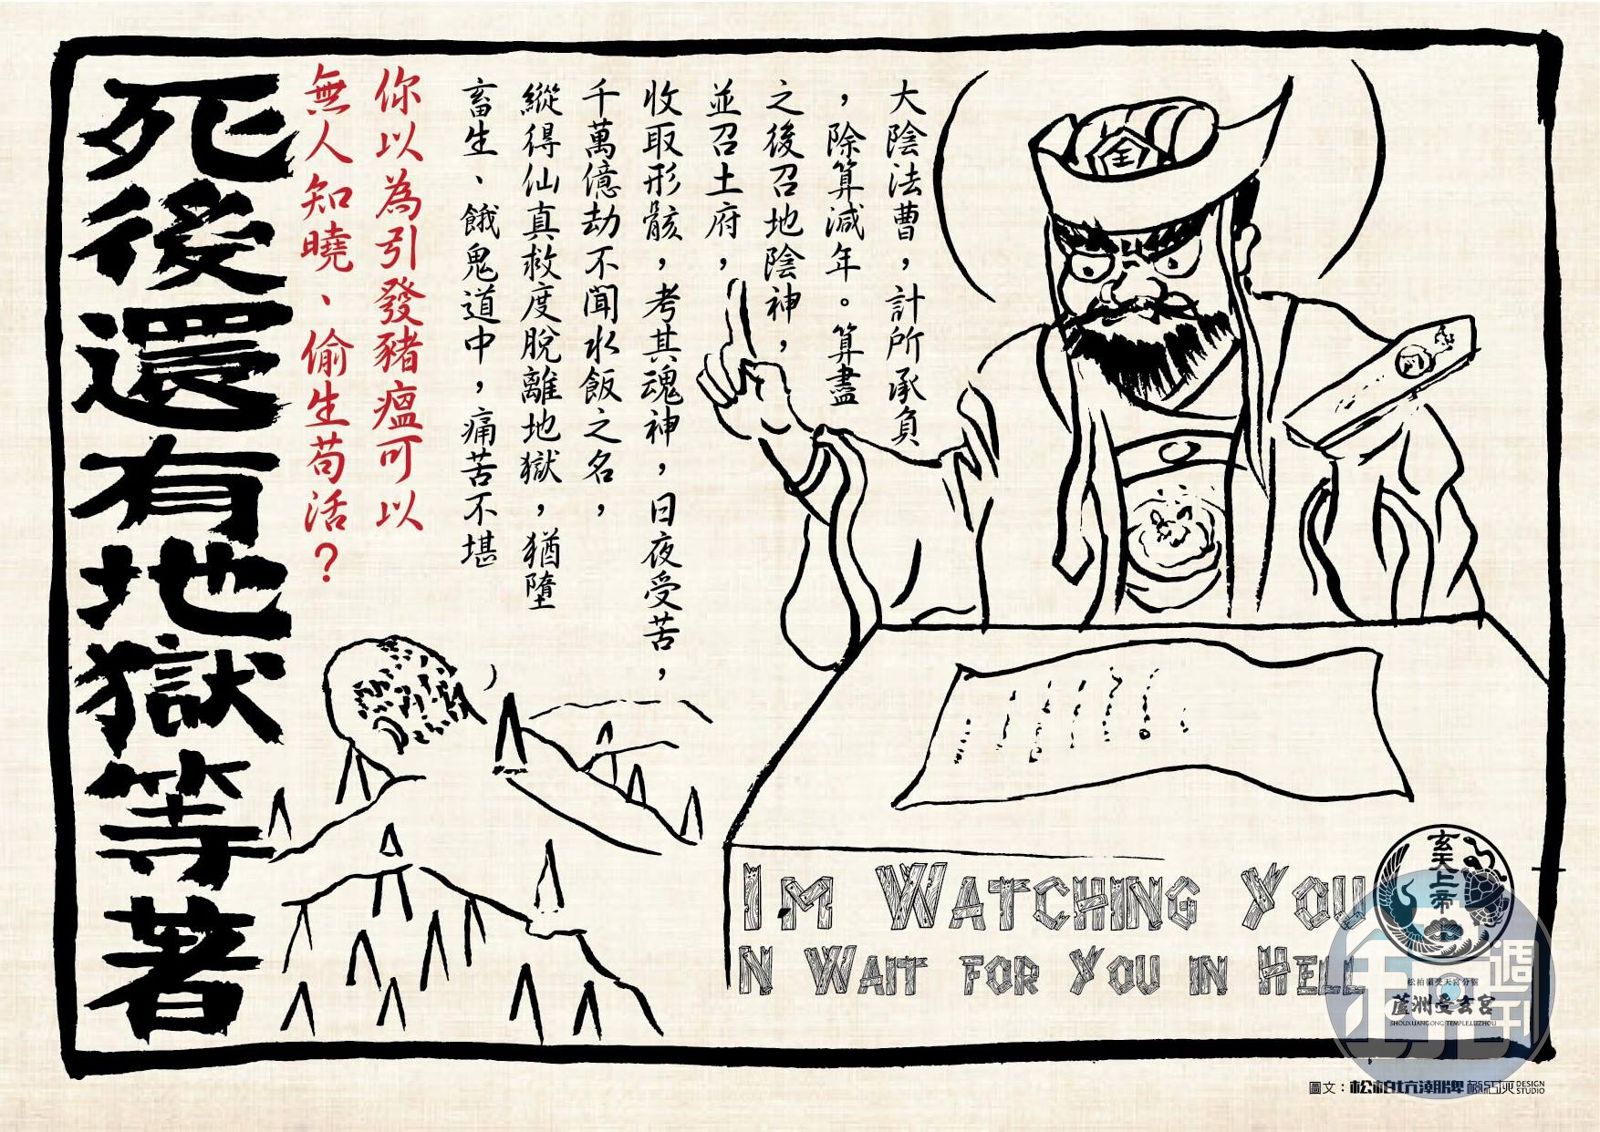 大陰法曹，計所承負
，除算減年。算盡
之後召地陰神，
並召土府，
收取形骸，考其魂神，日夜受苦，
千萬億劫不聞水飯之名，
縱得仙真救度脫離地獄，猶墮
畜生、餓鬼道中，痛苦不堪
你以為引發豬瘟可以
無人知曉、偷生苟活？
死後還有地獄等著
全
IM WATCHING YOU
N WAIT FOR YOU IN HELL
玄天上帝
松柏嶺受天宮分靈
蘆洲受玄宮
SHOUXUANGONG TEMPLE.LUZHOU
圖文：松柏坑潮牌
DESIGN
STUDIO